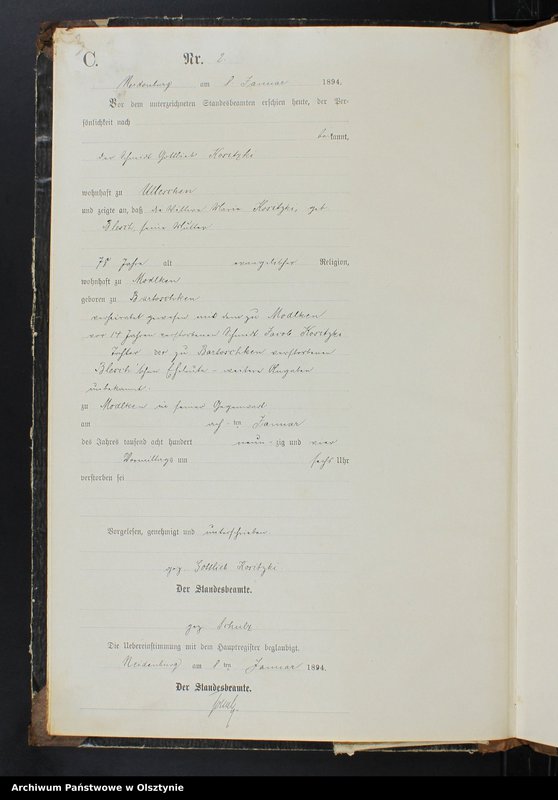 C.
Nr. 2
Neidenburg am 8 Januar 1894.
Vor dem unterzeichneten Standesbeamten erschien heute, der Per-
sönlichkeit nach
bekannt,
der Schmidt Gottlieb Koritzki
wohnhaft zu Ulleschen
und zeigte an, daß die Wittwe Marie Koritzki, geb.
Blesch, seine Mutter
78 Jahre alt evangelischer Religion,
wohnhaft zu Modlken
geboren zu Bartoschken
verheirathet gewesen mit dem zu Modlken
vor 14 Jahren verstorbenen Schmidt Jacob Koritzki
Tochter der zu Bartoschken verstorbenen
Blesch'schen Eheleute - weitere Angaben
unbekannt.
zu Modlken in seiner Gegenwart
am ach-ten Januar
des Jahres tausend acht hundert neun-zig und vier
Vormittags um sechs Uhr
verstorben sei
Vorgelesen, genehmigt und unterschrieben
gez. Gottlieb Koritzki
Der Standesbeamte.
gez. Schulz
Die Uebereinstimmung mit dem Hauptregister beglaubigt.
Neidenburg am 8ten Januar 1894.
Der Standesbeamte.
Schulz
Archiwum Państwowe w Olsztynie